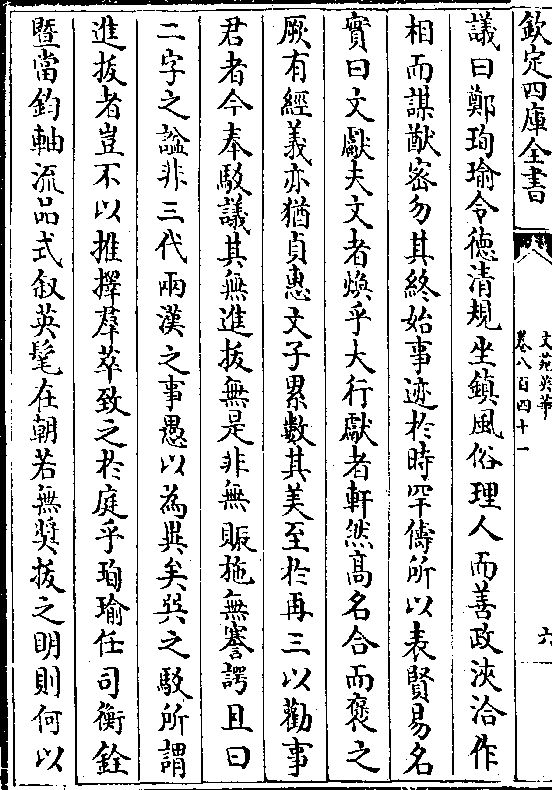 欽定四庫全書
文苑英華
卷八百四十一
六
議曰鄭珣瑜令徳清規坐鎮風俗理人而善政浹洽作
相而謀猷宻勿其終始事迹於時罕儔所以表賢易名
實曰文獻夫文者煥乎大行獻者軒然髙名合而褒之
厥有經義亦猶貞惠文子累數其美至於再三以勸事
君者今奉駮議其無進拔無是非無賑施無謇諤且曰
二字之諡非三代兩漢之事愚以為異矣異之駮所謂
進拔者豈不以推擇羣萃致之於庭乎珣瑜任司衡銓
暨當鈞軸流品式叙英髦在朝若無奬拔之明則何以